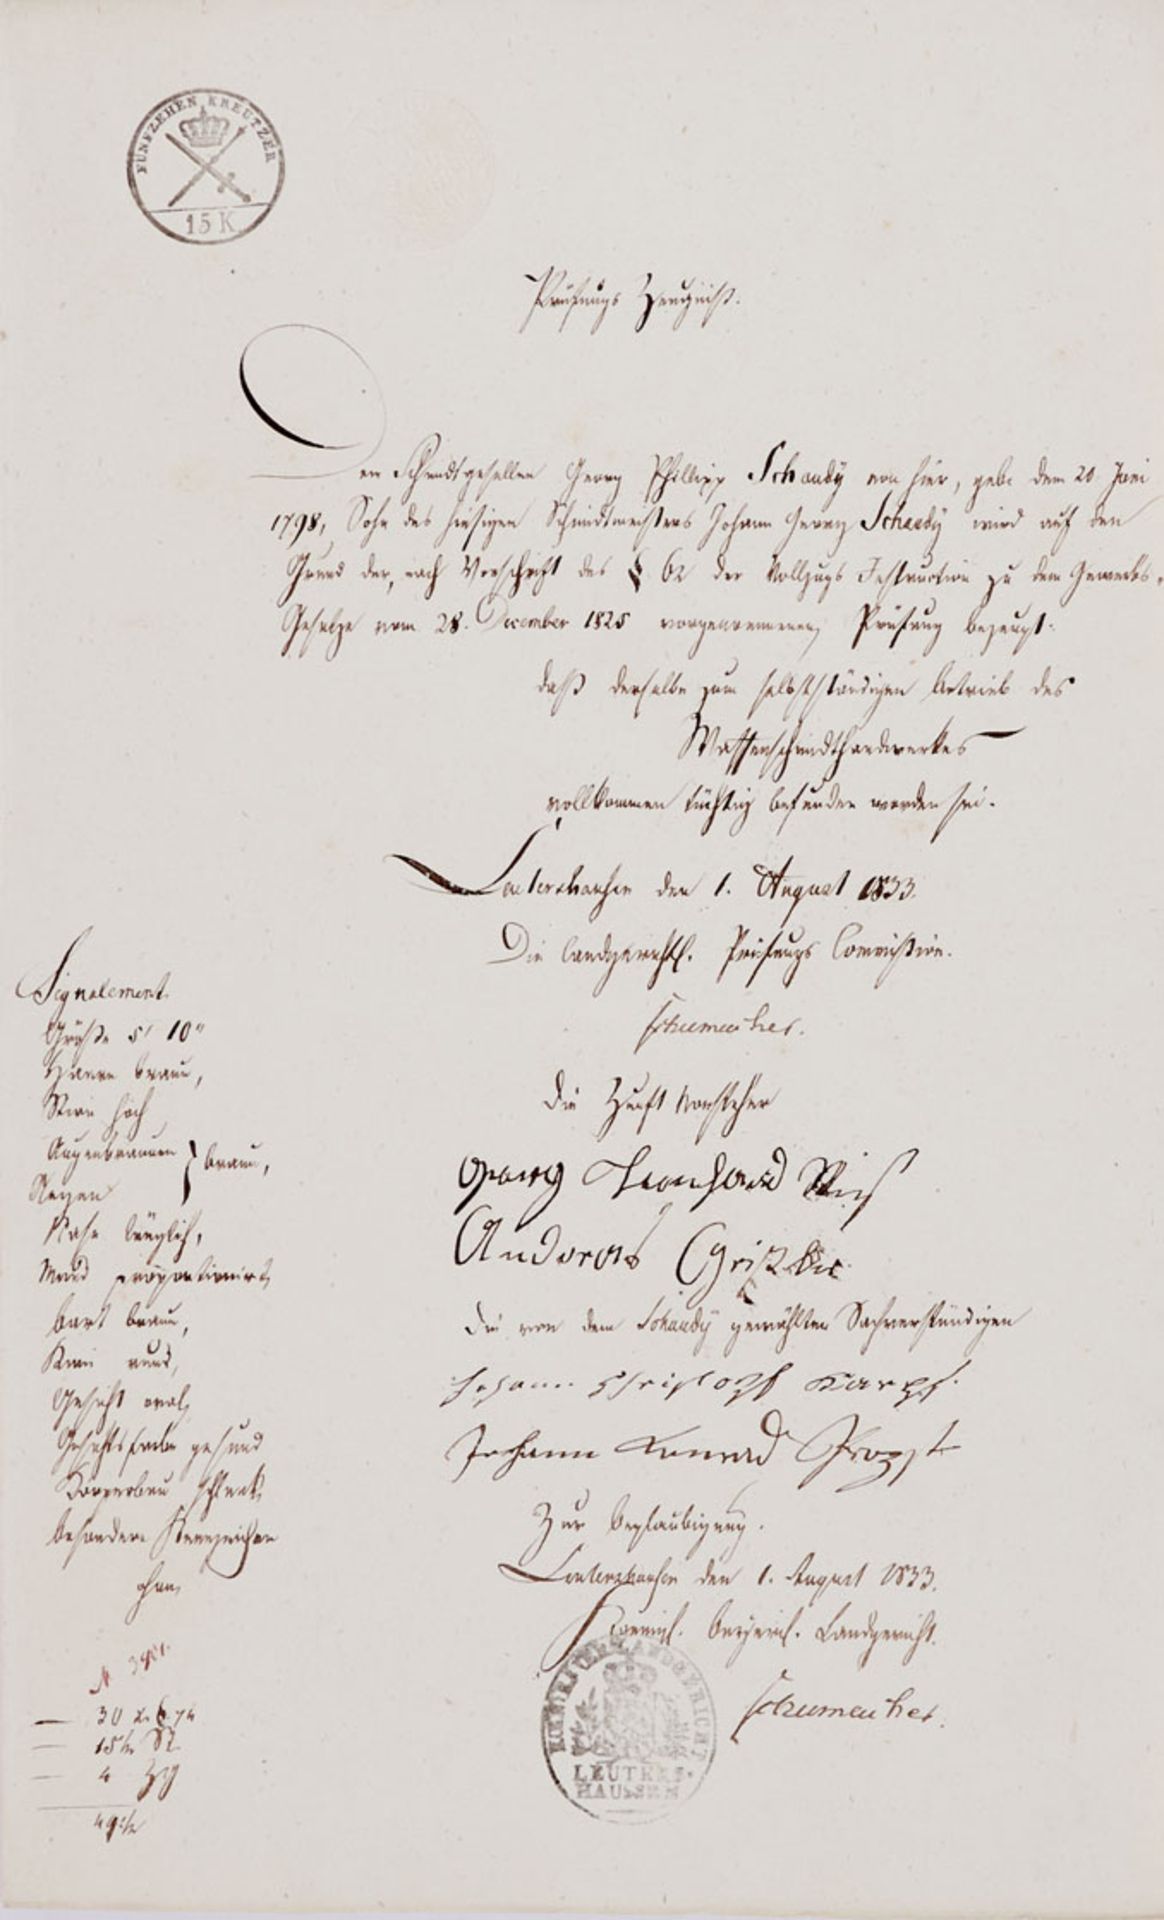 FÜNFZEHEN KREUTZER
15 K
Prüfungs Zeugniß.
Der Schmidtgesellen Georg Phillipp Schaudÿ von hier, geb. dem 20 Juni
1798, Sohn des hiesigen Schmidtmeisters Johann Georg Schaudÿ wird auf den
Grund der, nach Vorschrift des § 62 der Vollzugs Instruction zu dem Gewerbs-
Gesetze vom 28. December 1825 vorgenommenen Prüfung bezeugt:
daß derselbe zum selbstständigen Betrieb des
Waffenschmidthandwerkes
vollkommen tüchtig befunden worden sei.
Leutershausen den 1. August 1833.
Die landgerichtl. Prüfungs Commißion.
Schumacher.
Die Zunft Vorsteher
Georg Leonhard
Andreas
Die von dem Schaudÿ gewählten Sachverständigen
Johann Christoph Karpf.
Johann Konrad Probst
Zur Beglaubigung.
Leutershausen den 1. August 1833.
Koenigl. Bayerisch. Landgericht.
Schumacher.
KOENIGL. LANDGERICHT
LEUTERS-
HAUSEN
Signalement.
Größe 5' 10"
Haare braun,
Stirn hoch
Augenbraunen } braun,
Augen
Nase länglich,
Mund proportionirt,
Bart braun,
Kinn rund,
Gesicht oval,
Gesichtsfarbe gesund
Körperbau schlank,
besondere Kennzeichen
ohne,
30
15
4
49